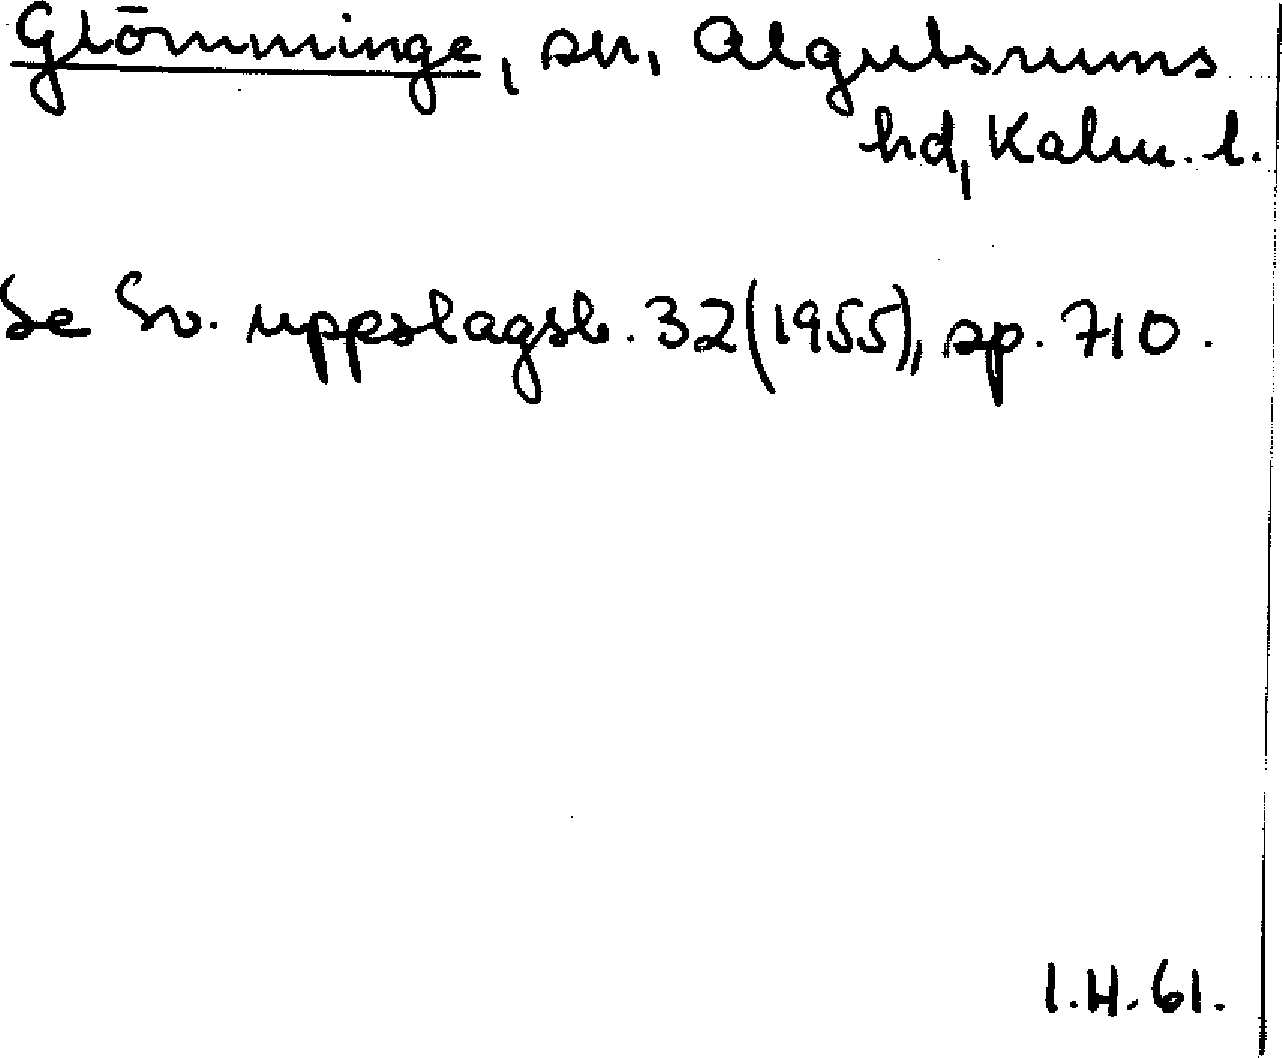 Glömminge, sn, Algutsrums
hd, Kalm. l.
Se Sv. uppslagsb. 32 (1955), sp. 710.
I.H. 61.